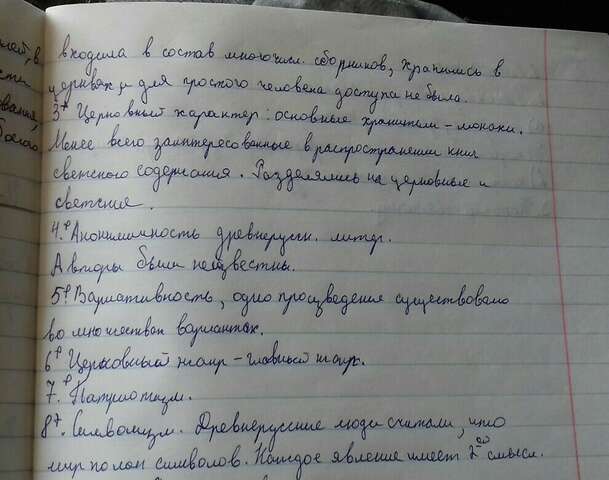 входила в состав многочисл. сборников, хранились в
церквях и для простого человека доступа не было.
3. Церковный характер: основные хранители - монахи.
Менее всего заинтересованные в распространении книг
светского содержания. Разделялись на церковные и
светские.
4. Анонимичность древнерусск. литер.
Авторы были неизвестны.
5. Вариативность, одно произведение существовало
во множествах вариантах.
6. Церковный жанр - главный жанр.
7. Патриотизм.
8. Символизм. Древнерусские люди считали, что
мир полон символов. Каждое явление имеет 2 смысл.